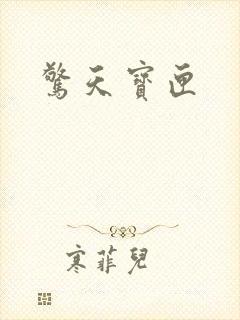 驚天寶匣
寒菲兒